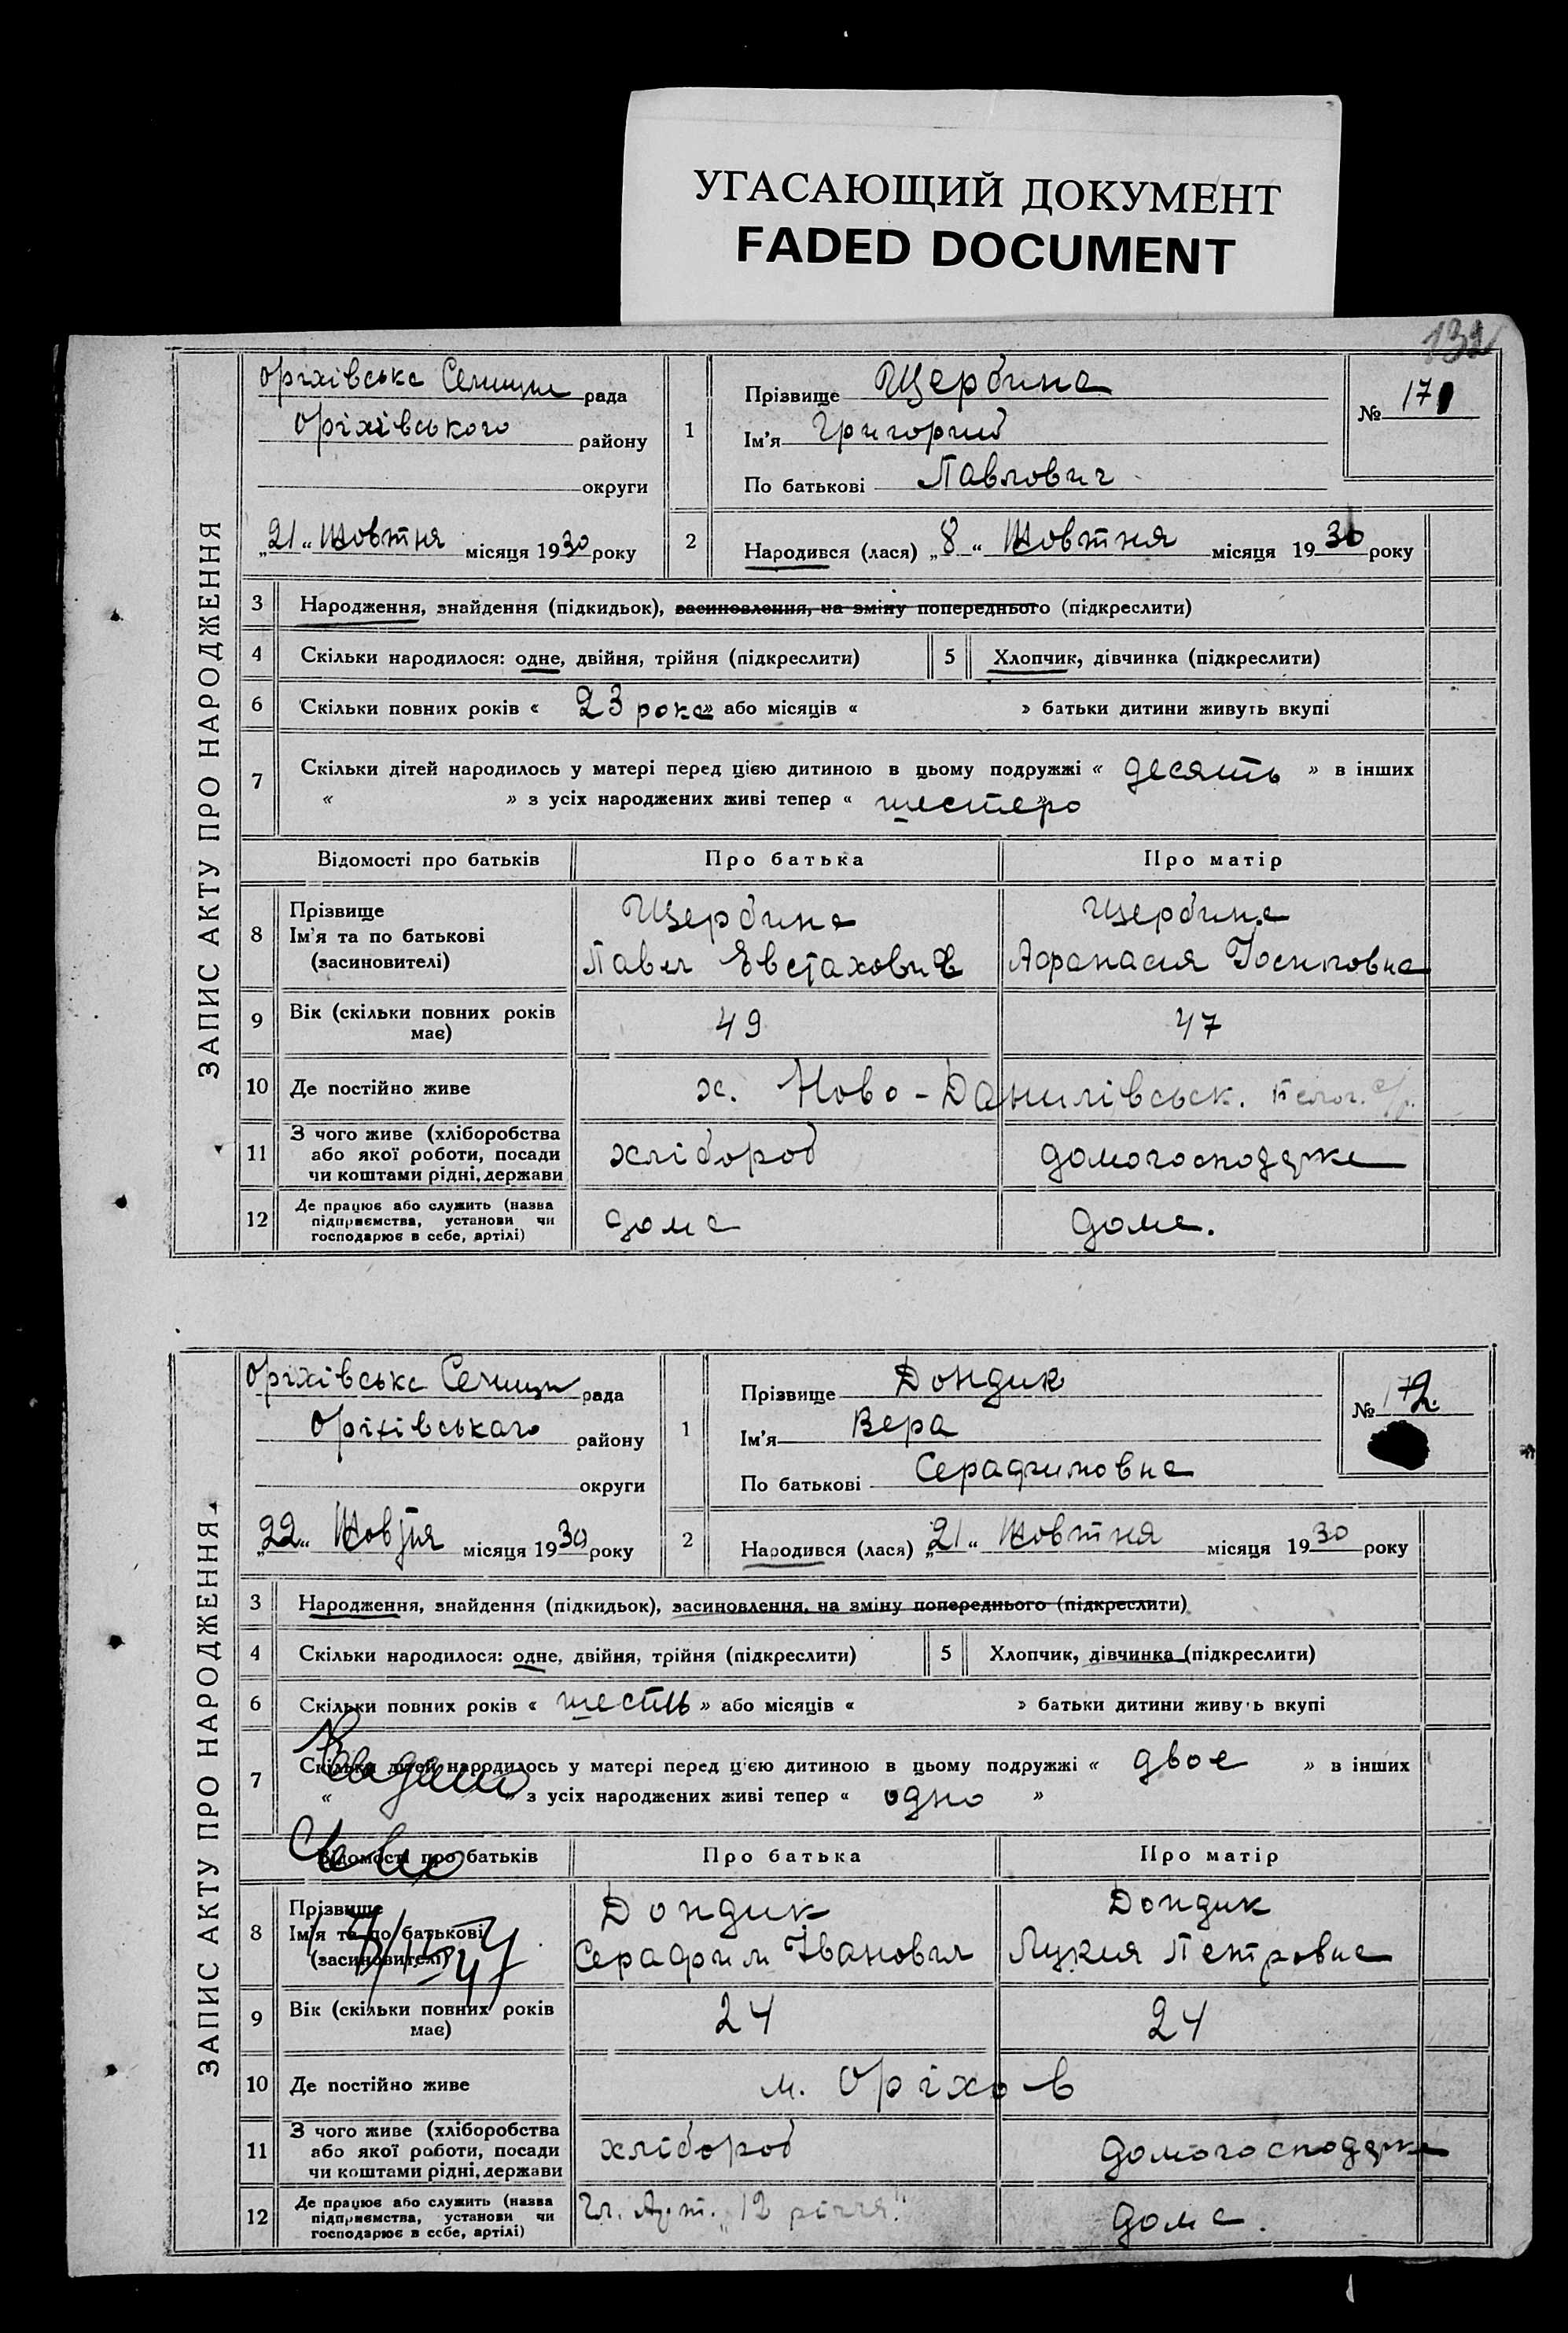 УГАСАЮЩИЙ ДОКУМЕНТ
FADED DOCUMENT
132
ЗАПИС АКТУ ПРО НАРОДЖЕННЯ
Оріхівська Селищн рада
Оріхівського району
округи
„21“ Жовтня місяця 1930 року
1
Прізвище Щербина
Ім'я Григорий
По батькові Павлович
№ 171
2 Народився (лася) „8“ Жовтня місяця 1930 року
3 Народження, знайдення (підкидьок), засиновлення, на зміну попереднього (підкреслити)
4 Скільки народилося: одне, двійня, трійня (підкреслити) 5 Хлопчик, дівчинка (підкреслити)
6 Скільки повних років « 23 рока » або місяців « » батьки дитини живуть вкупі
7 Скільки дітей народилось у матері перед цією дитиною в цьому подружжі « десять » в інших
« » з усіх народжених живі тепер « шестеро »
Відомості про батьків Про батька Про матір
8 Прізвище Щербина Щербина
Ім'я та по батькові Павел Евстахович Афанасия Іосиповна
(засиновителі)
9 Вік (скільки повних років має) 49 47
10 Де постійно живе х. Ново-Данилівськ.
11 З чого живе (хліборобства або якої роботи, посади чи коштами рідні, держави хлібороб домогосподарка
12 Де працює або служить (назва підприємства, установи чи господарює в себе, артілі) дома дома.
ЗАПИС АКТУ ПРО НАРОДЖЕННЯ
Оріхівська Селищн рада
Оріхівського району
округи
„22“ Жовтня місяця 1930 року
1
Прізвище Дондик
Ім'я Вера
По батькові Серафимовна
№ 172.
2 Народився (лася) „21“ Жовтня місяця 1930 року
3 Народження, знайдення (підкидьок), засиновлення, на зміну попереднього (підкреслити)
4 Скільки народилося: одне, двійня, трійня (підкреслити) 5 Хлопчик, дівчинка (підкреслити)
6 Скільки повних років « шесть » або місяців « » батьки дитини живуть вкупі
7 Скільки дітей народилось у матері перед цією дитиною в цьому подружжі « двое » в інших
« » з усіх народжених живі тепер « одно »
Відомості про батьків Про батька Про матір
8 Прізвище Дондик Дондик
Ім'я та по батькові Серафим Іванович Лукия Петровна
(засиновителі)
9 Вік (скільки повних років має) 24 24
10 Де постійно живе м. Оріхов
11 З чого живе (хліборобства або якої роботи, посади чи коштами рідні, держави хлібороб домогосподарка
12 Де працює або служить (назва підприємства, установи чи господарює в себе, артілі) Чл. Арт. „12 річчя" дома.